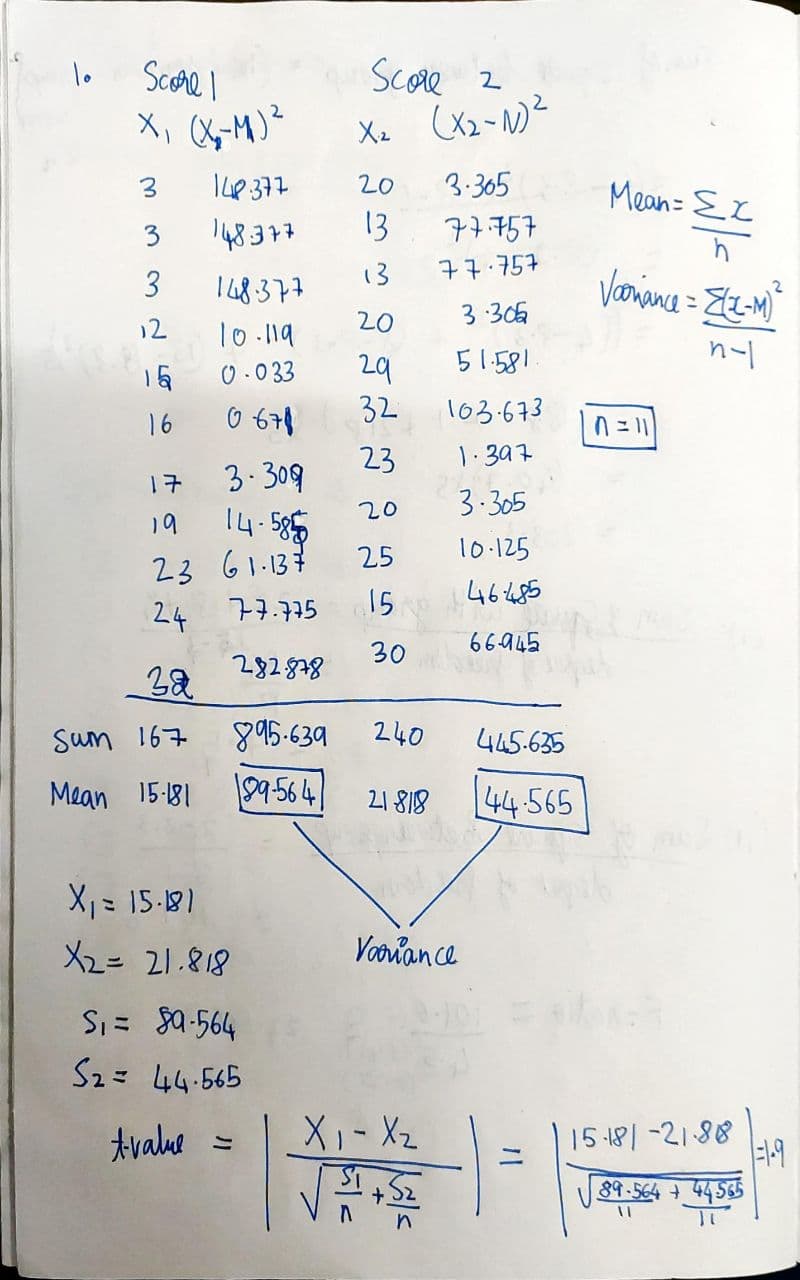 1. Score 1 Score 2
X₁ (X₁-M)² X₂ (X₂-N)²
3 148.377 20 3.305
3 148.377 13 77.757
3 148.377 13 77.757
12 10.119 20 3.305
15 0.033 29 51.581
16 0.671 32 103.673
17 3.309 23 1.397
19 14.585 20 3.305
23 61.137 25 10.125
24 77.775 15 46.485
32 282.878 30 66.945
Sum 167 895.639 240 445.635
Mean 15.181 89.564 21.818 44.565
Mean = Σx/n
Variance = Σ(x-M)²/n-1
n = 11
Variance
X₁ = 15.181
X₂ = 21.818
S₁ = 89.564
S₂ = 44.565
t-value = | X₁ - X₂ / √ S₁/n + S₂/n | = | 15.181 - 21.818 / √ 89.564/11 + 44.565/11 | = 1.9